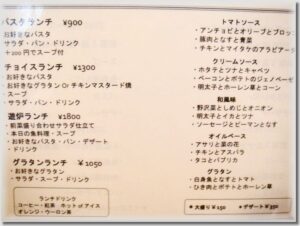 パスタランチ ¥900
お好きなパスタ
サラダ・パン・ドリンク
+200円でスープ付
チョイスランチ ¥1300
お好きなパスタ
お好きなグラタン Or チキンマスタード焼
・スープ
サラダ・パン・ドリンク
遊炉ランチ ¥1800
前菜盛り合わせサラダ仕立て
・本日の魚料理・スープ
・お好きなパスタ・パン・デザート
ドリンク
グラタンランチ ¥1050
・お好きなグラタン
・サラダ・スープ・ドリンク
ランチドリンク
コーヒー・紅茶 ホット or アイス
オレンジ・ウーロン茶
トマトソース
・アンチョビとオリーブとブロッコ
・豚肉となすと青菜
・チキンとマイタケのアラビアータ
クリームソース
・ホタテとツナとキャベツ
・ベーコンとポテトのジェノベーゼ
・明太子とホーレン草とコーン
和風味
・野沢菜としめじとオニオン
・明太子とイカとツナ
・ソーセージとピーマンとなす
オイルベース
・アサリと菜の花
・チキンとアスパラ
・タコとパプリカ
グラタン
・白身魚となすとトマト
・ひき肉とポテトとホーレン草
*大盛り ¥150
*デザート ¥350